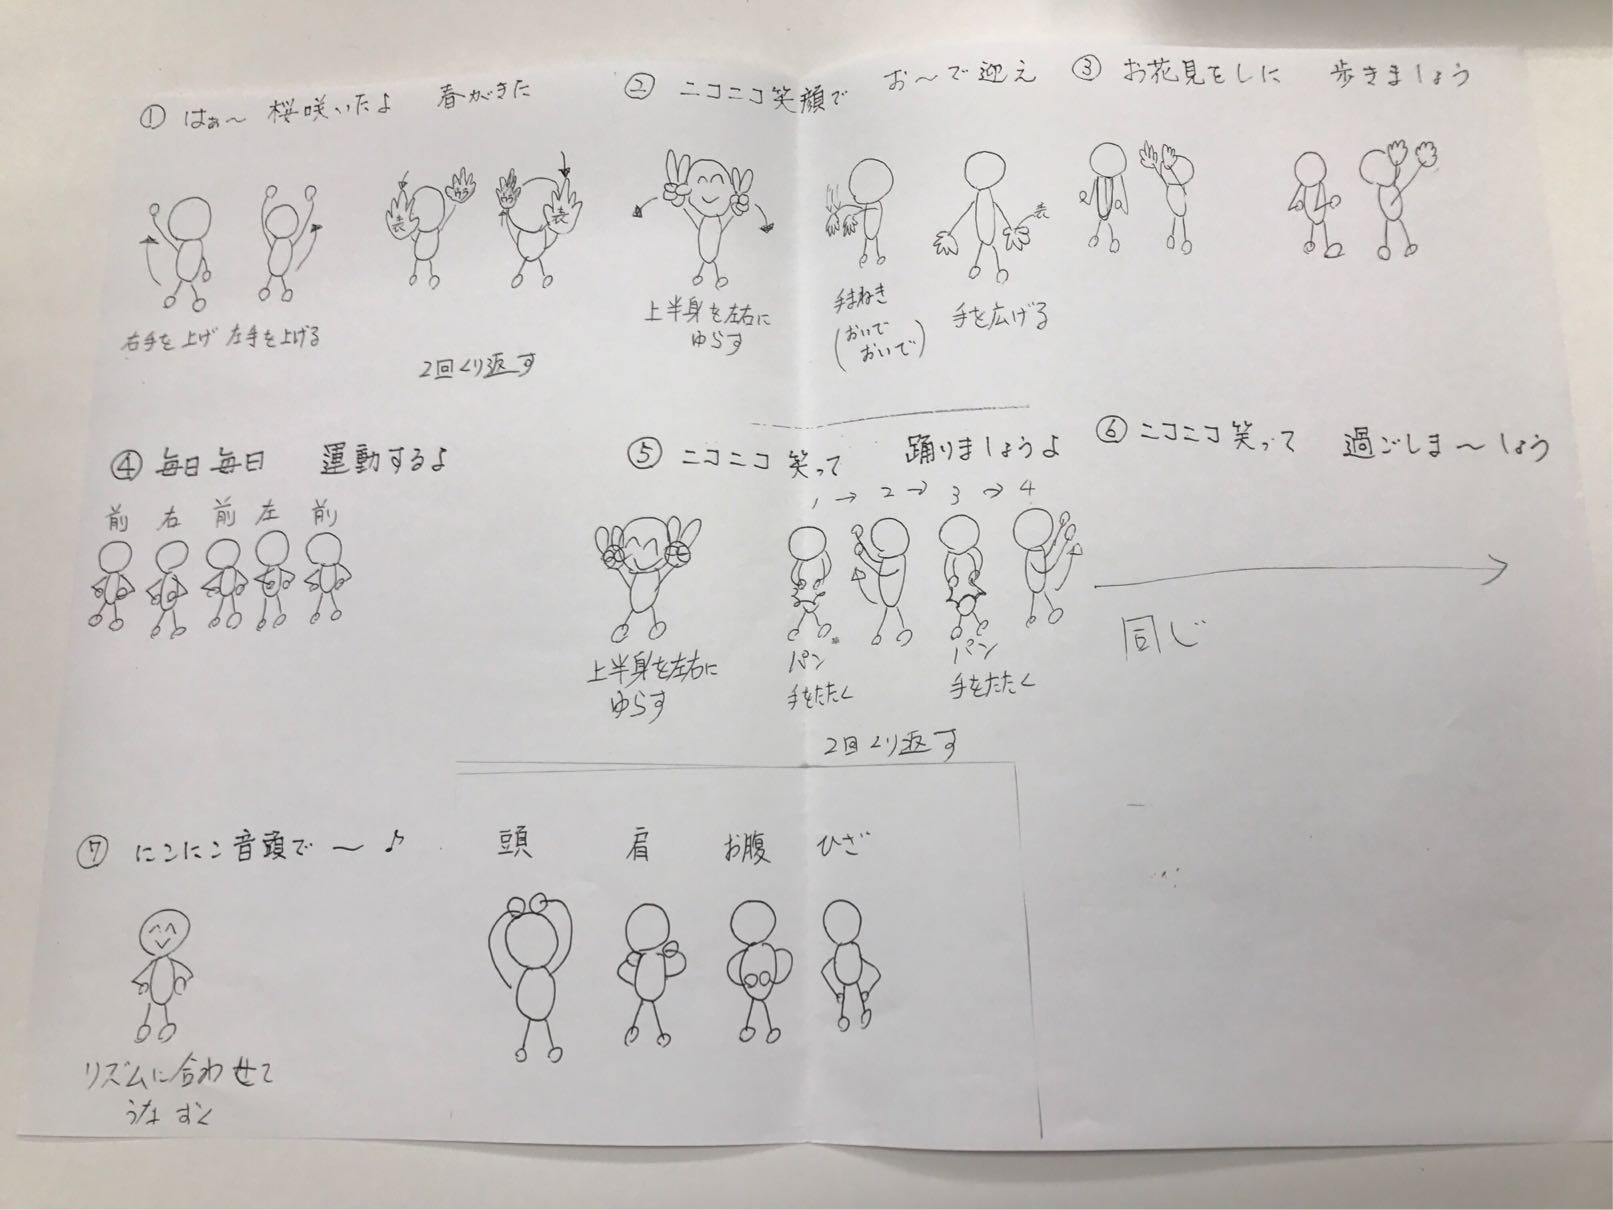 ① はぁ〜 桜咲いたよ 春がきた
右手を上げ 左手を上げる
表 うら うら 表
2回くり返す
② ニコニコ笑顔で お〜で迎え
上半身を左右に
ゆらす
手まねき
(おいで
おいで)
表
手を広げる
③ お花見をしに 歩きましょう
④ 毎日毎日 運動するよ
前 右 前 左 前
⑤ ニコニコ 笑って 踊りましょうよ
1 → 2 → 3 → 4
上半身を左右に
ゆらす
パン
手をたたく
パン
手をたたく
2回くり返す
⑥ ニコニコ笑って 過ごしま〜しょう
同じ
⑦ にこにこ音頭で 〜 ♪
リズムに合わせて
うなずく
頭 肩 お腹 ひざ